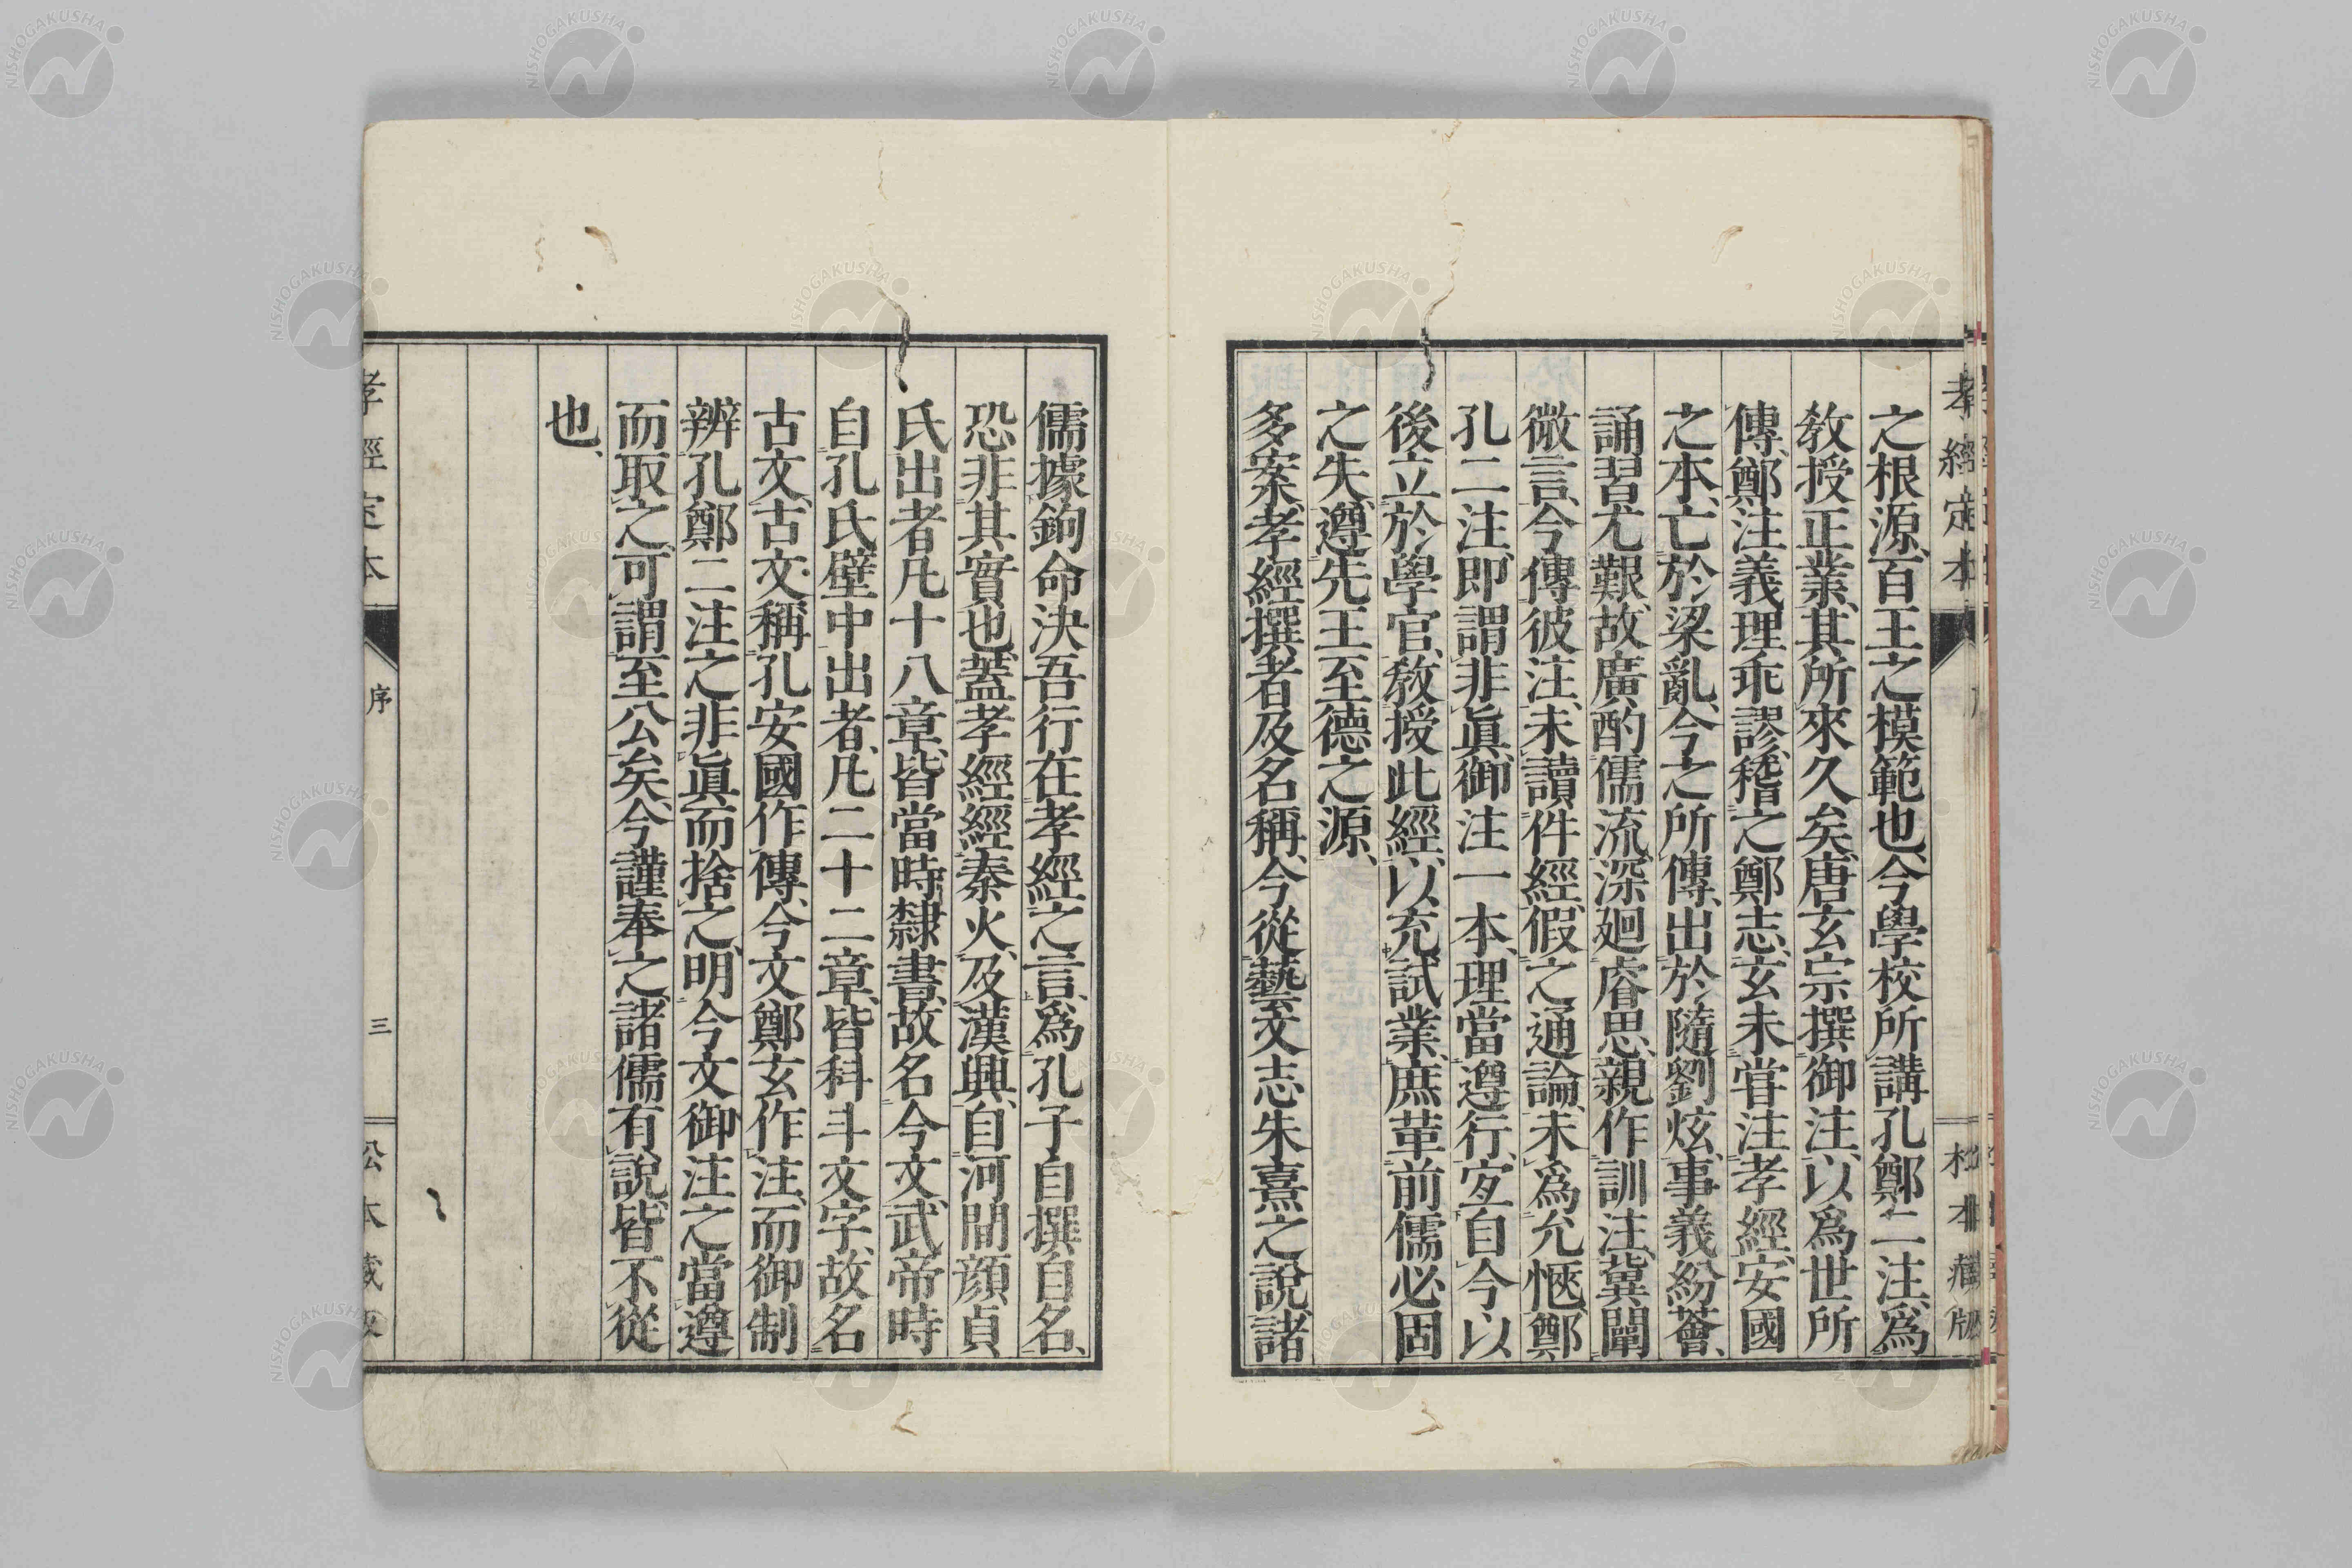 孝經定本
松本藏版
之根源、百王之模範也、今學校所講孔鄭二注、爲
教授正業、其所來久矣、唐玄宗撰御注、以爲世所
傳、鄭注義理乖謬、稽之鄭志、玄未甞注孝經、安國
之本、亡於梁亂、今之所傳、出於隨劉炫、事義紛薈、
誦習尤艱、故廣酌儒流、深廻睿思、親作訓注、冀闡
微言、今傳彼注、未讀件經、假之通論、未爲允愜、鄭
孔二注、即謂非眞、御注一本、理當遵行、宐自今以
後立於學官、教授此經、以充試業、庶革前儒必固
之失、遵先王至德之源、
多案、孝經撰者及名稱、今從藝文志朱熹之說、諸
儒據鉤命決吾行在孝經之言、爲孔子自撰自名、
恐非其實也、蓋孝經經秦火、及漢興、自河間顔貞
氏出者凡十八章、皆當時隸書、故名今文、武帝時
自孔氏壁中出者、凡二十二章、皆科斗文字、故名
古文、古文稱孔安國作傳、今文鄭玄作注、而御制
辨孔鄭二注之非眞而捨之、明今文御注之當遵
而取之、可謂至公矣、今謹奉之、諸儒有說、皆不從
也、
孝經定本
序
三
松本藏版
NISHOGAKUSHA